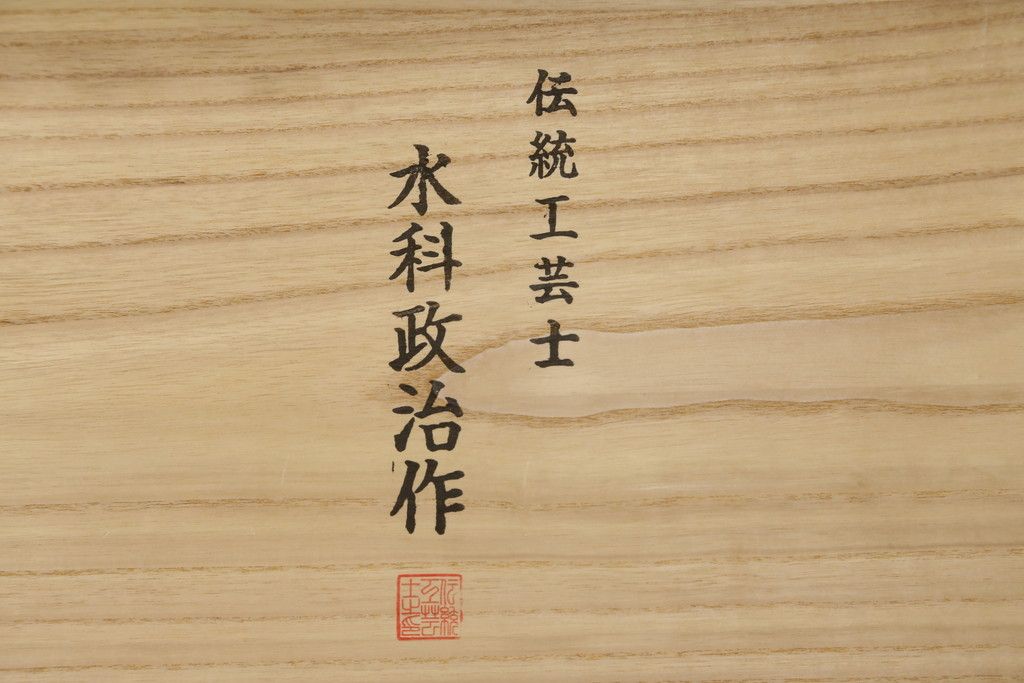 伝統工芸士
水科政治作
伝統
工芸
士之印